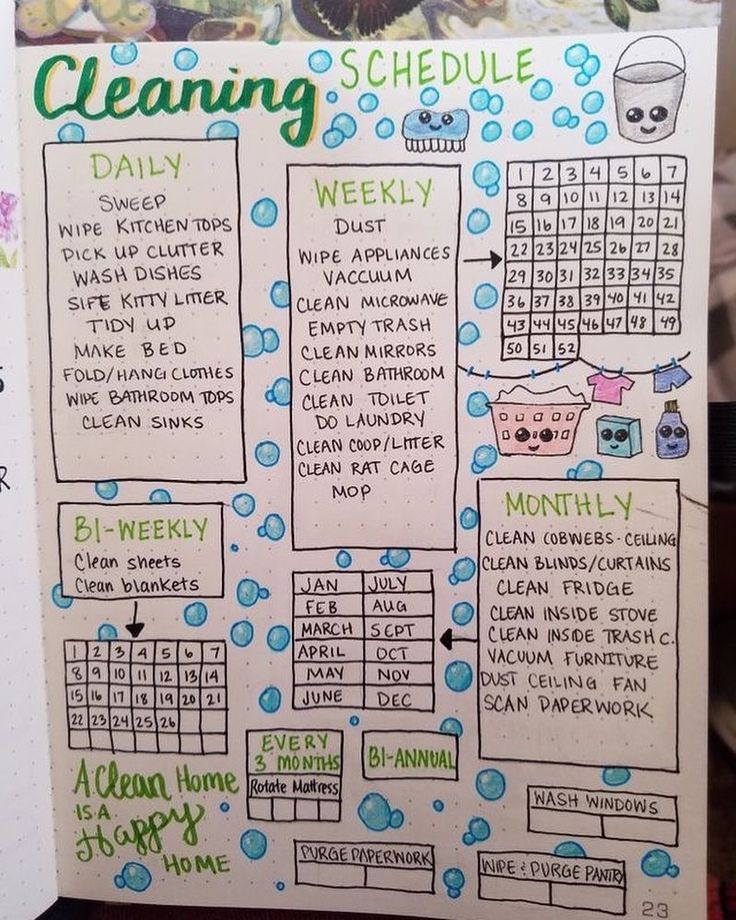 Cleaning SCHEDULE
DAILY
SWEEP
WIPE KITCHEN TOPS
PICK UP CLUTTER
WASH DISHES
SIFE KITTY LITTER
TIDY UP
MAKE BED
FOLD/HANG CLOTHES
WIPE BATHROOM TOPS
CLEAN SINKS
WEEKLY
DUST
WIPE APPLIANCES
VACCUUM
CLEAN MICROWAVE
EMPTY TRASH
CLEAN MIRRORS
CLEAN BATHROOM
CLEAN TOILET
DO LAUNDRY
CLEAN COOP/LITTER
CLEAN RAT CAGE
MOP
1 2 3 4 5 6 7
8 9 10 11 12 13 14
15 16 17 18 19 20 21
22 23 24 25 26 27 28
29 30 31 32 33 34 35
36 37 38 39 40 41 42
43 44 45 46 47 48 49
50 51 52
BI-WEEKLY
Clean sheets
Clean blankets
1 2 3 4 5 6 7
8 9 10 11 12 13 14
15 16 17 18 19 20 21
22 23 24 25 26
MONTHLY
CLEAN COBWEBS-CEILING
CLEAN BLINDS/CURTAINS
CLEAN FRIDGE
CLEAN INSIDE STOVE
CLEAN INSIDE TRASH C.
VACUUM FURNITURE
DUST CEILING FAN
SCAN PAPERWORK
JAN JULY
FEB AUG
MARCH SEPT
APRIL OCT
MAY NOV
JUNE DEC
EVERY
3 MONTHS
Rotate Mattress
BI-ANNUAL
WASH WINDOWS
PURGE PAPERWORK
WIPE & PURGE PANTRY
A Clean HOME
IS A
Happy
HOME
23